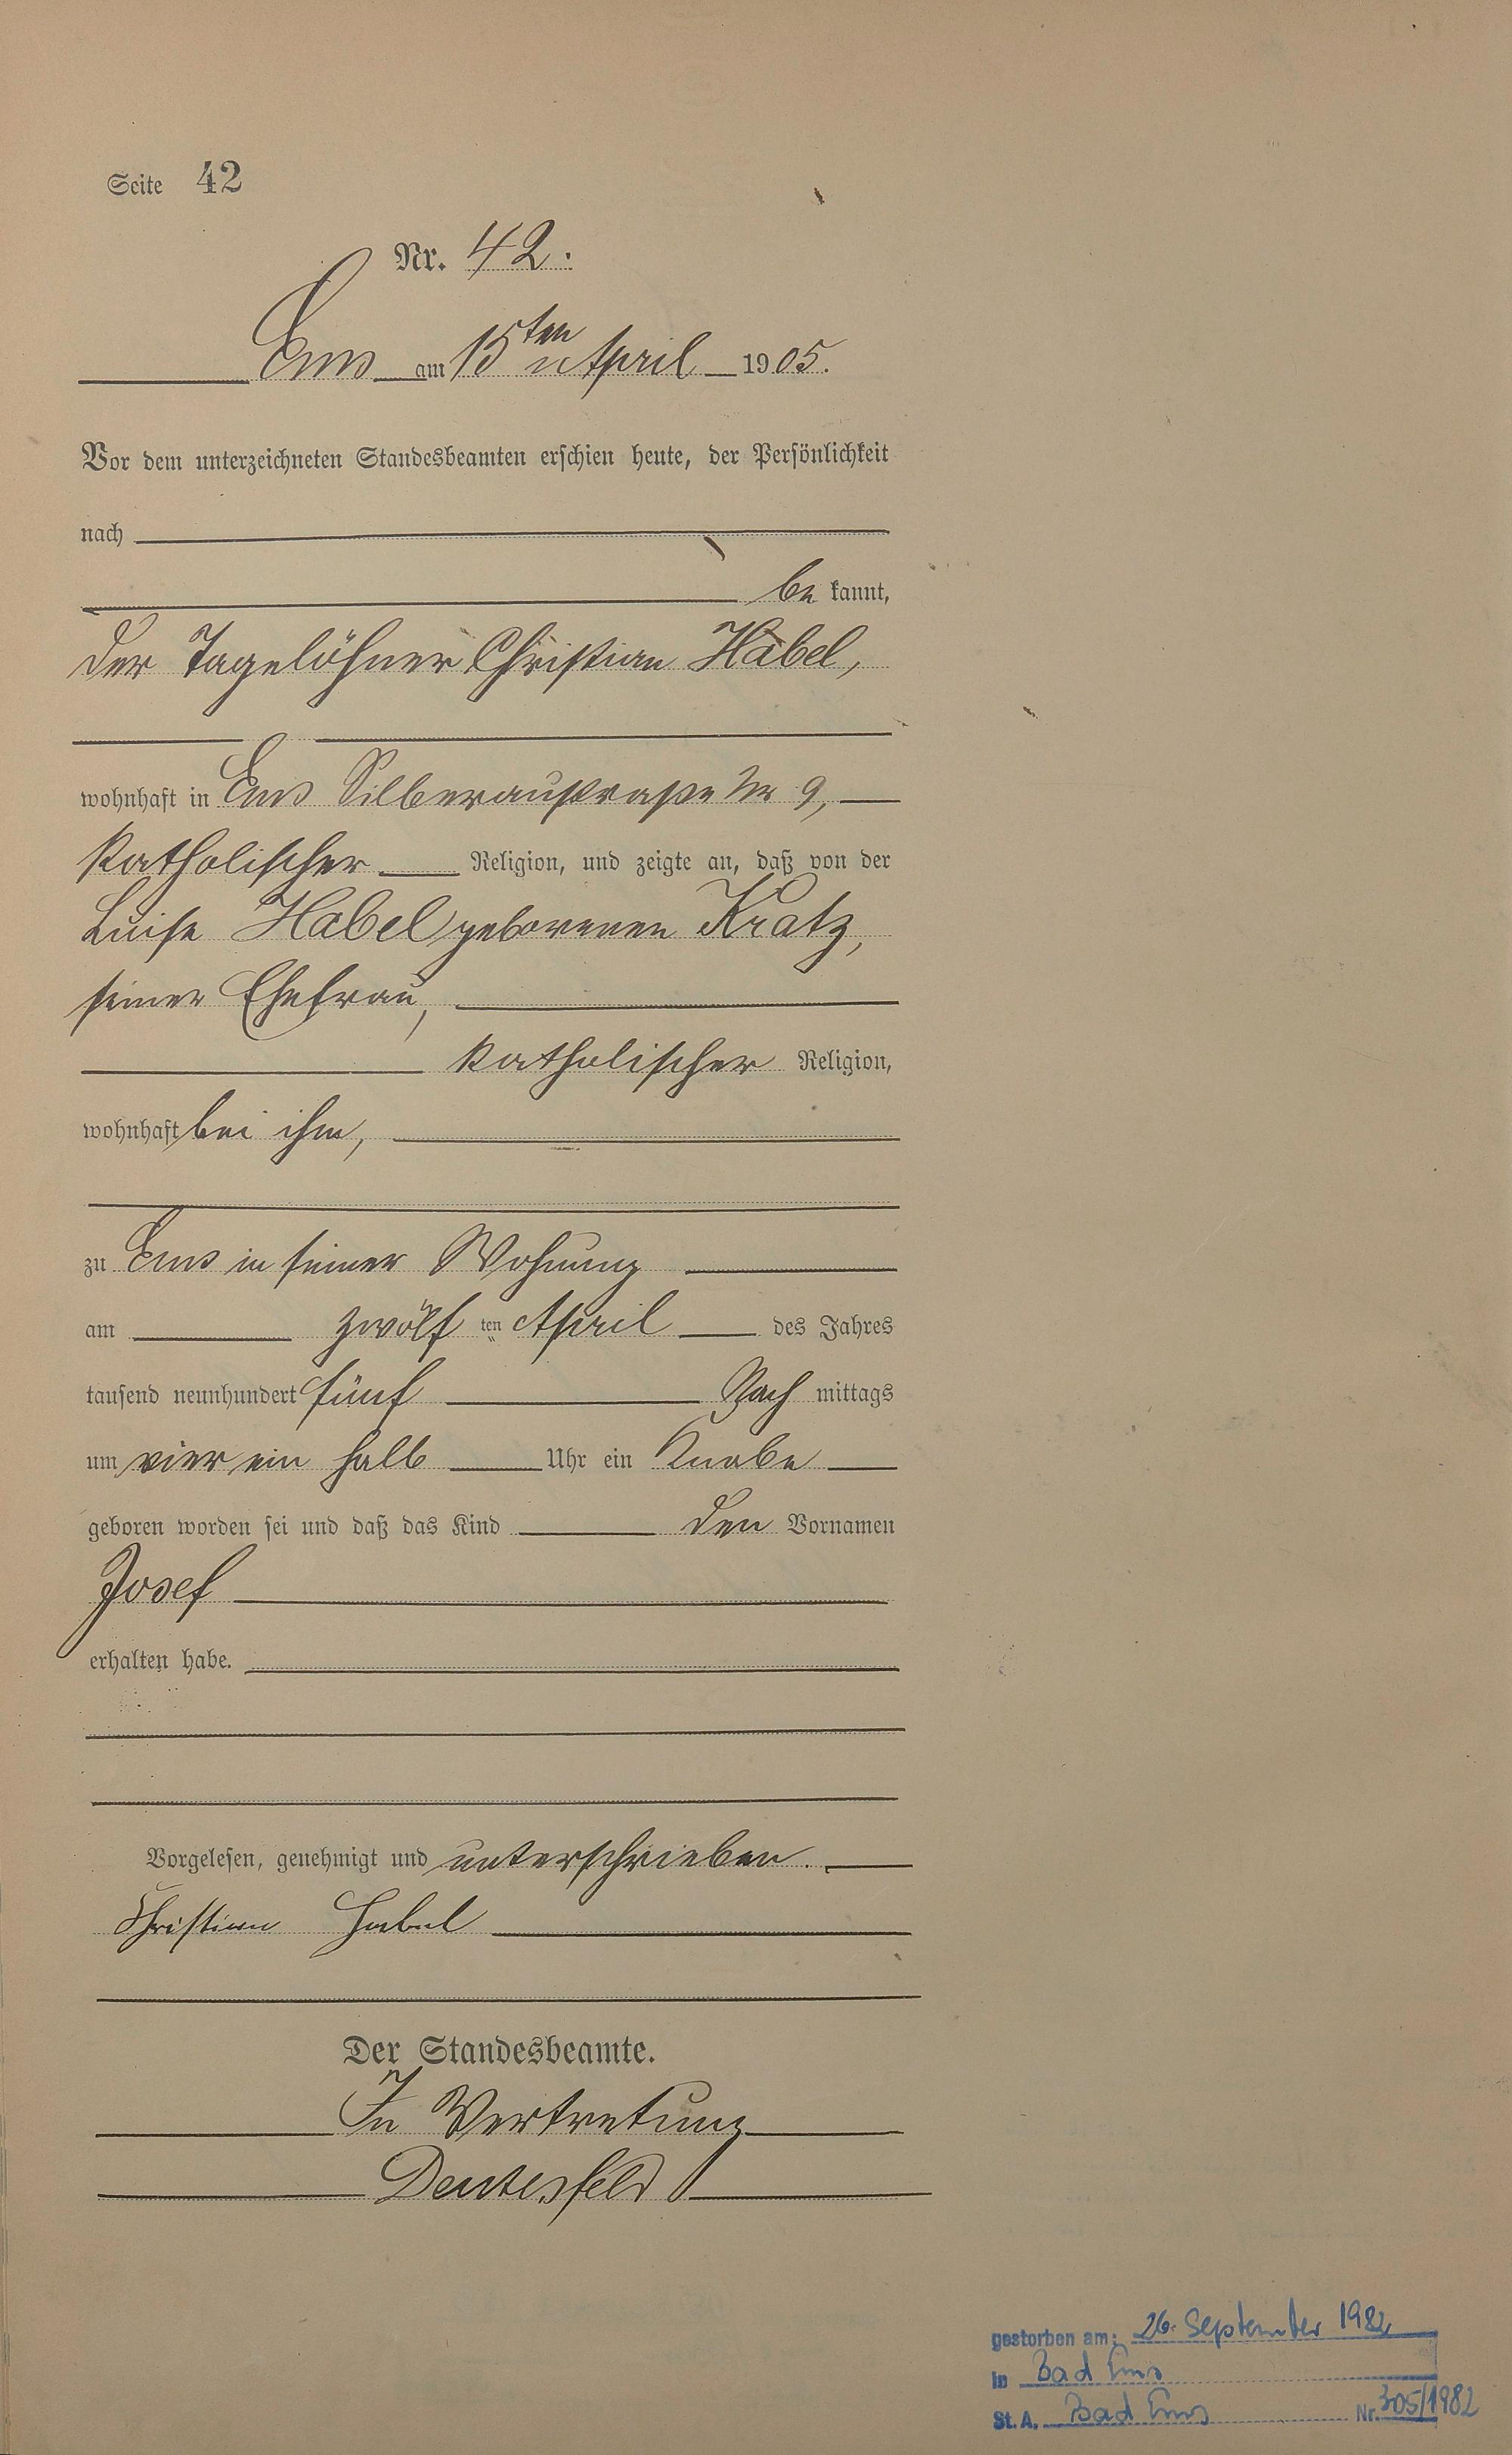 Seite 42
Nr. 42.
Ems am 15ten April 1905.
Vor dem unterzeichneten Standesbeamten erschien heute, der Persönlichkeit
nach
be kannt,
der Tagelöhner Christian Habel,
wohnhaft in Ems Silberaustraße Nr 9,
katholischer Religion, und zeigte an, daß von der
Luise Habel geborenen Kratz,
seiner Ehefrau,
katholischer Religion,
wohnhaft bei ihm,
zu Ems in seiner Wohnung
am zwölf ten April des Jahres
tausend neunhundert fünf Nach mittags
um vier ein halb Uhr ein Knabe
geboren worden sei und daß das Kind den Vornamen
Josef
erhalten habe.
Vorgelesen, genehmigt und unterschrieben.
Christian Habel
Der Standesbeamte.
In Vertretung
gestorben am: 26. September 1982
in Bad Ems
St. A. Bad Ems Nr. 305/1982